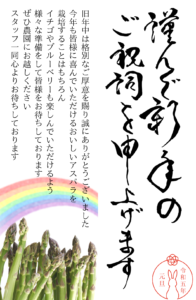 謹んで新年の
ご祝詞を申し上げます
旧年中は格別なご厚意を賜り誠にありがとうございました
今年も皆様に喜んでいただけるおいしいアスパラを、
栽培することはもちろん
イチゴやブルーベリーも楽しんでいただけるよう
様々な準備をして皆様をお待ちしております
ぜひ農園にお越しください
スタッフ一同心よりお待ちしております
令和五年
元旦